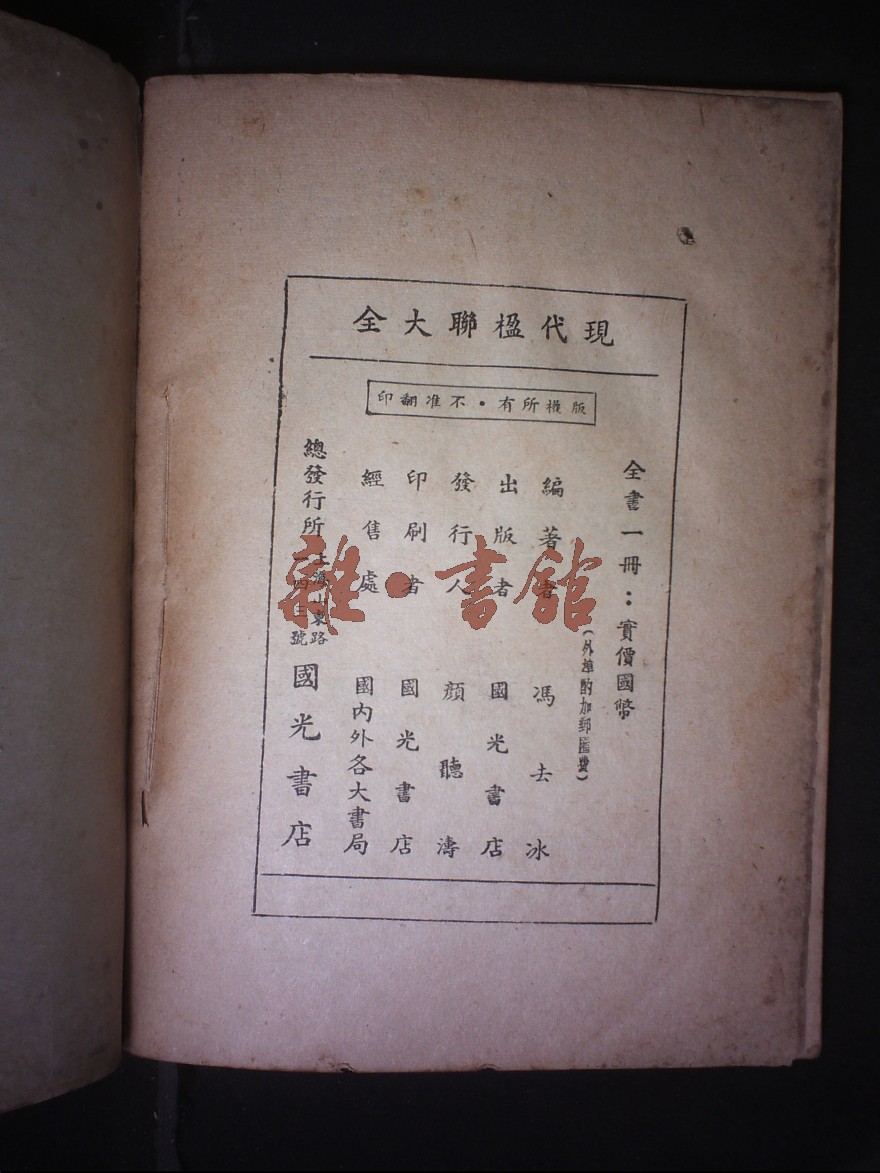 現代楹聯大全
版權所有・不准翻印
全書一冊：實價國幣
（外埠酌加郵匯費）
編著者 馮去冰
出版者 國光書店
發行人 顏聽濤
印刷者 國光書店
經售處 國內外各大書局
總發行所 上海山東路一四三號 國光書店
雜・書館